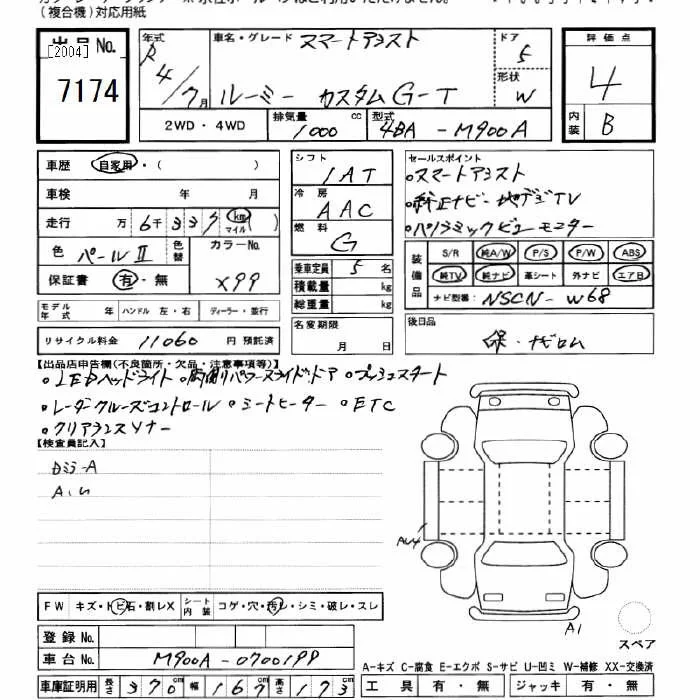 (複合機)対応用紙
出品No.
[2004]
7174
年式 R4/7月
車名・グレード スマートアシスト
ルーミー カスタムG-T
ドア 5
形状 W
2WD・4WD
排気量 1000 cc
型式 4BA-M900A
評価点 4
内装 B
車歴 自家用・( )
車検 年 月
走行 万6千337 km マイル
色 パールⅡ 色替 カラーNo. X99
保証書 有・無
モデル年式 年 ハンドル 左・右 ディーラー・並行
リサイクル料金 11060 円 預託済
シフト IAT
冷房 AAC
燃料 G
乗車定員 5 名
積載量 kg
総重量 kg
名変期限 月 日
セールスポイント
・スマートアシスト
・純正ナビ・地デジTV
・パノラミックビューモニター
装備品 S/R 純A/W P/S P/W ABS
純TV 純ナビ 革シート 外ナビ エアB
ナビ型番: NSCN-W68
後日品
保・ナビロム
【出品店申告欄(不良箇所・欠品・注意事項等)】
・LEDヘッドライト ・両側パワースライドドア ・プッシュスタート
・レーダークルーズコントロール ・シートヒーター ・ETC
・クリアランスソナー
【検査員記入】
カミラ-A
FW キズ・トビ石・割レX シート内装 コゲ・穴・汚レ・シミ・破レ・スレ
登録No.
車台No. M900A-0700198
車庫証明用 長さ 370cm 幅 167cm 高さ 173cm
A1
スペア
A-キズ C-腐食 E-エクボ S-サビ U-凹ミ W-補修 XX-交換済
工具 有・無 ジャッキ 有・無